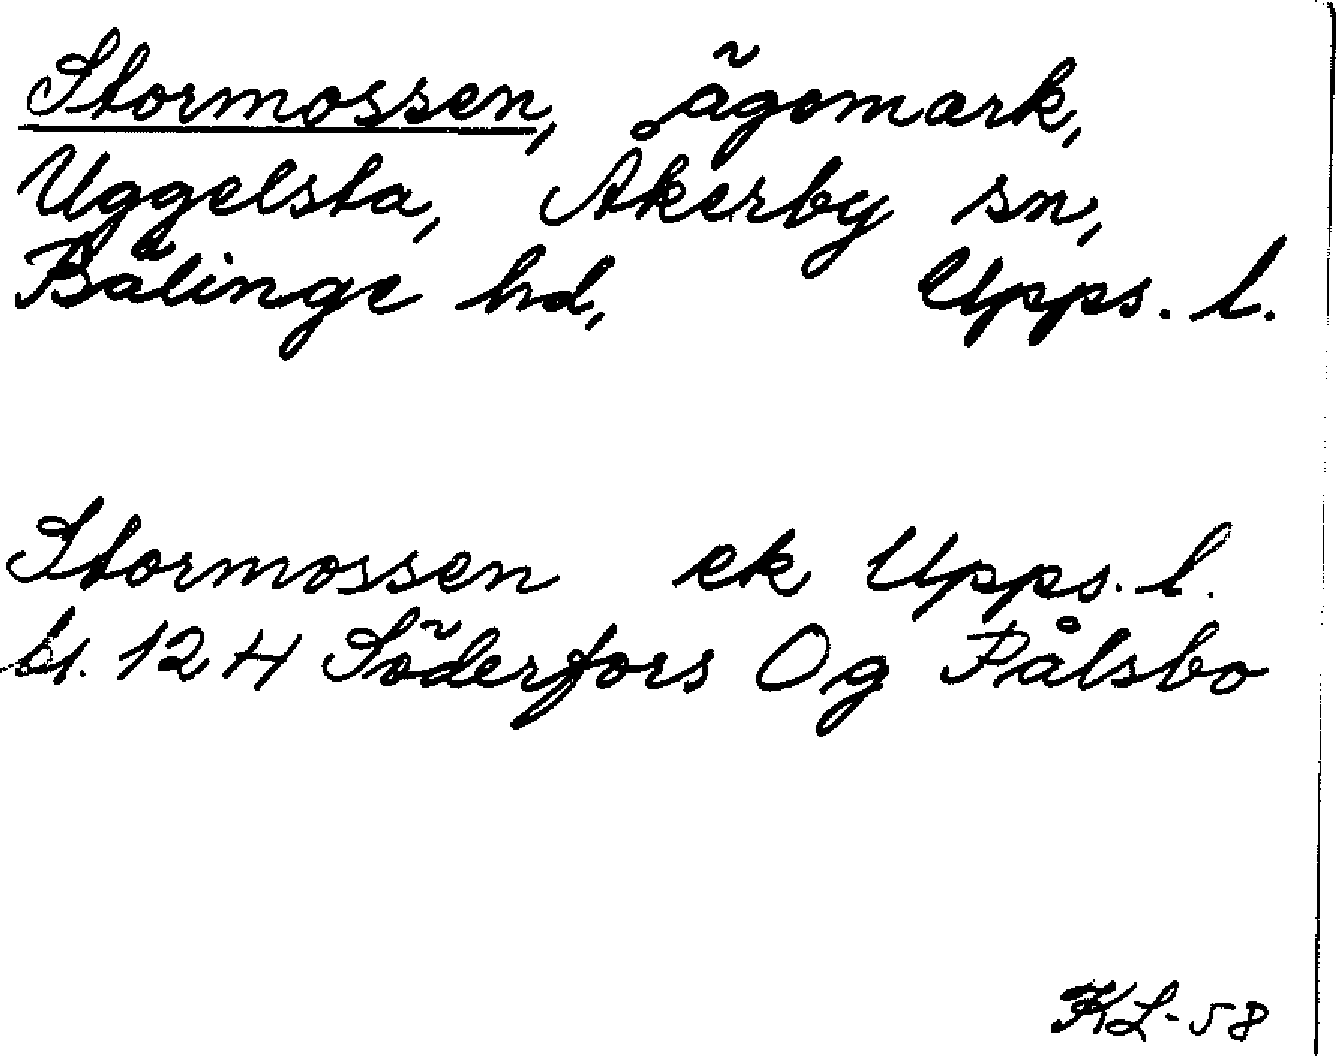 Stormossen, ägomark,
Uggelsta, Åkerby sn,
Bälinge hd, Upps. l.
Stormossen ek Upps. l.
bl. 12 H Söderfors Og Pålsbo
KL-58